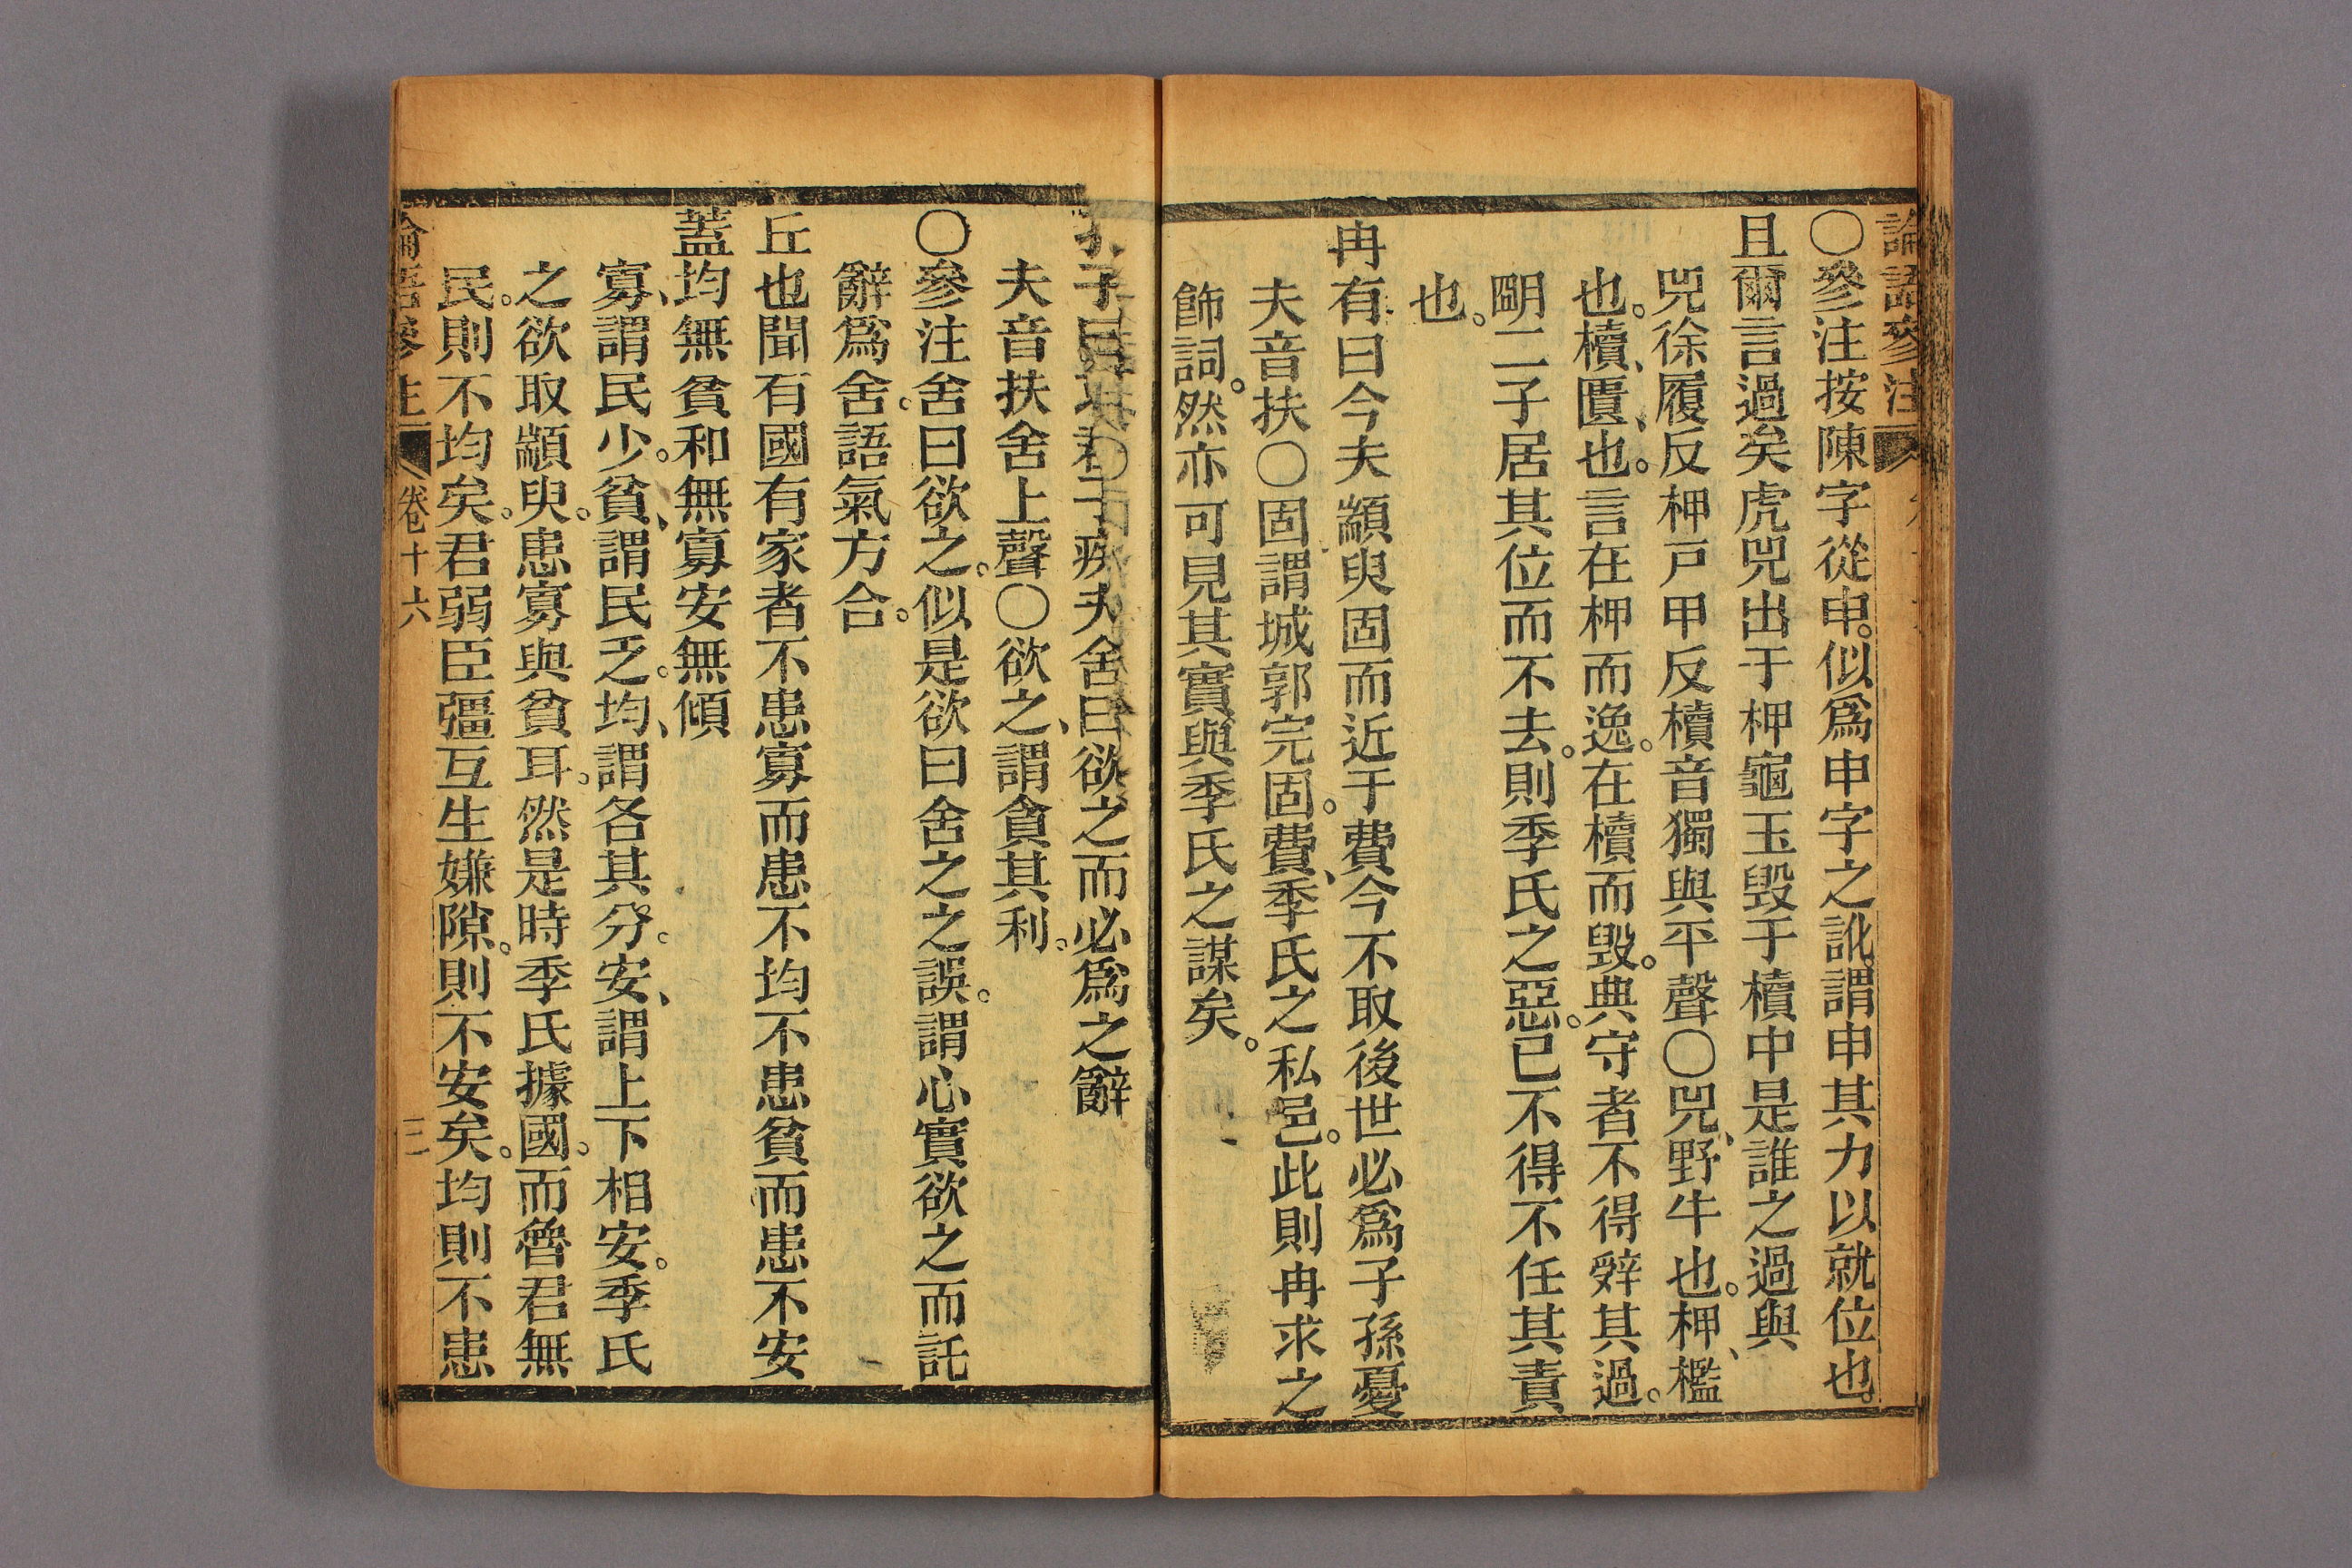 論語參注
〇參注按陳字從申。似爲申字之訛。謂申其力以就位也。
且爾言過矣虎兕出于柙龜玉毀于櫝中是誰之過與
兕徐履反柙戸甲反櫝音獨與平聲〇兕、野牛也。柙、檻
也。櫝、匱、也。言在柙而逸。在櫝而毀。典守者不得辤其過。
明二子居其位而不去。則季氏之惡。已不得不任其責
也。
冉有曰今夫顓臾固而近于費今不取後世必爲子孫憂
夫音扶〇固謂城郭完固。費、季氏之私邑。此則冉求之
飾詞。然亦可見其實與季氏之謀矣。
孔子曰求君子疾夫舍曰欲之而必爲之辭
夫音扶舍上聲〇欲之、謂貪其利。
〇參注舍曰欲之。似是欲曰舍之之誤。謂心實欲之而託
辭爲舍。語氣方合。
丘也聞有國有家者不患寡而患不均不患貧而患不安
蓋均無貧和無寡安無傾
寡、謂民少。貧、謂民乏。均、謂各其分。安、謂上下相安。季氏
之欲取顓臾。患寡與貧耳。然是時季氏據國。而魯君無
民。則不均矣。君弱臣彊互生嫌隙。則不安矣。均則不患
論語參注 卷十六 三